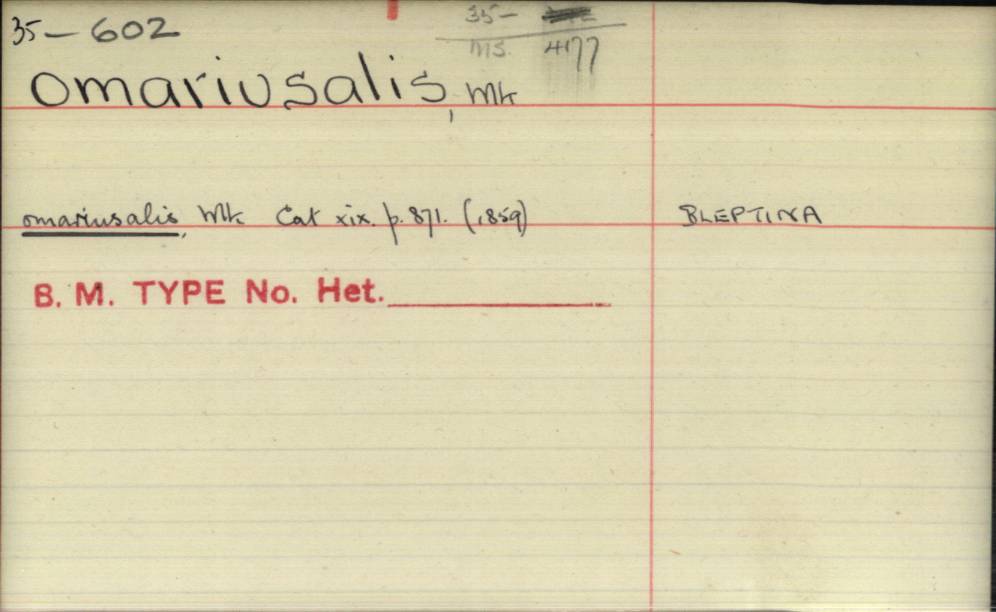 35— 602
35—
MS. 4177
omariusalis, Wlk
omariusalis, Wlk Cat xix. p. 871. (1859) BLEPTINA
B. M. TYPE No. Het.